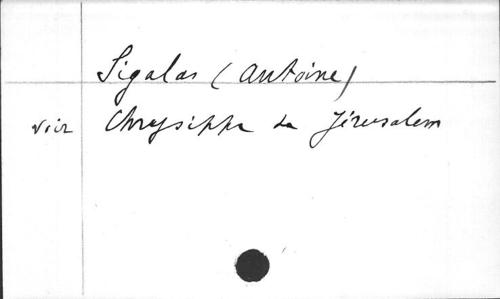 Sigalas (Antoine)
voir Chrysippe de Jérusalem